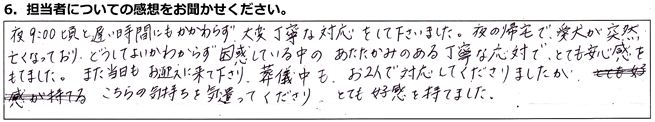 6. 担当者についての感想をお聞かせください。
夜9:00頃と遅い時間にもかかわらず、大変丁寧な対応をして下さいました。夜の帰宅で、愛犬が突然
亡くなっており、どうしてよいかわからず困惑している中の あたたかみのある丁寧な応対で、とても安心感を
もてました。また当日も お迎えに来て下さり、葬儀中も、お2人で対応してくださりましたが、とても好
感が持てる こちらの気持ちを気遣ってくださり、とても好感を持てました。